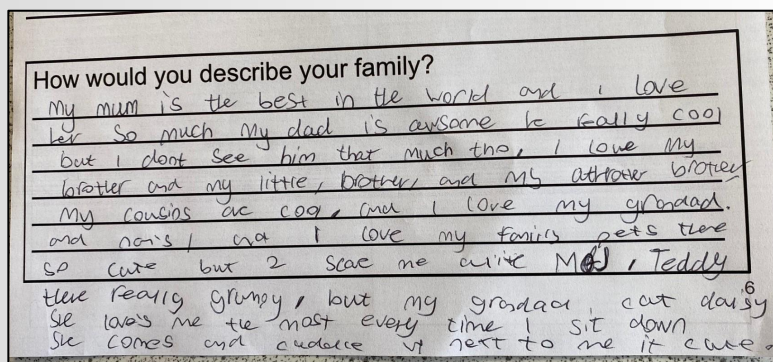 How would you describe your family?
my mum is the best in the world and i love
her so much my dad is awsome he really cool
but i dont see him that much tho, I love my
brother and my little, brother, and my brother
my cousins are cool, and I love my grandad.
and nan's, and I love my family pets there
so cute but 2 scae me, Teddy
there really grumpy, but my grandad, cat daisy
6
she loves me the most every time I sit down
she comes and next to me it cute.